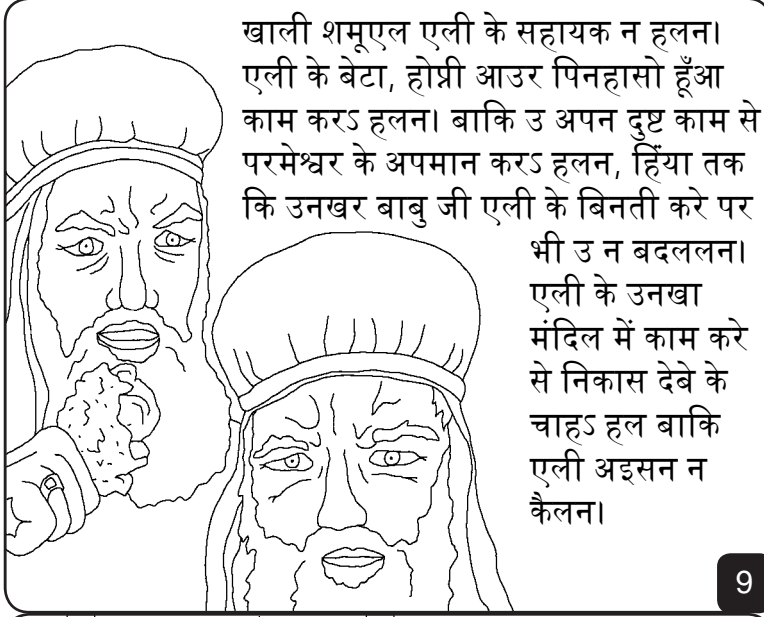 खाली शमूएल एली के सहायक न हलन।
एली के बेटा, होप्नी आउर पिनहासो हूँआ
काम करऽ हलन। बाकि उ अपन दुष्ट काम से
परमेश्वर के अपमान करऽ हलन, हिंया तक
कि उनखर बाबु जी एली के बिनती करे पर
भी उ न बदललन।
एली के उनखा
मंदिल में काम करे
से निकास देबे के
चाहऽ हल बाकि
एली अइसन न
कैलन।
9